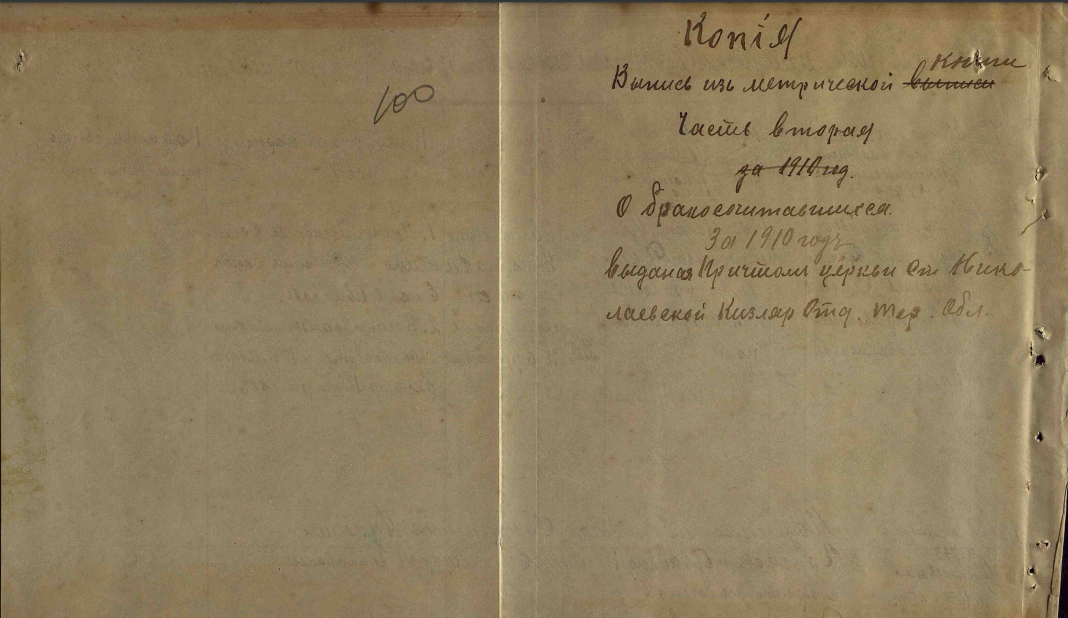 100
Копія
Выпись изъ метрической выписи книги
Часть вторая
за 1910 год.
О бракосочитавшихся.
За 1910 годъ
выданая Причтомъ церкви ст. Нико-
лаевской Кизляр Отд. Тер. Обл.